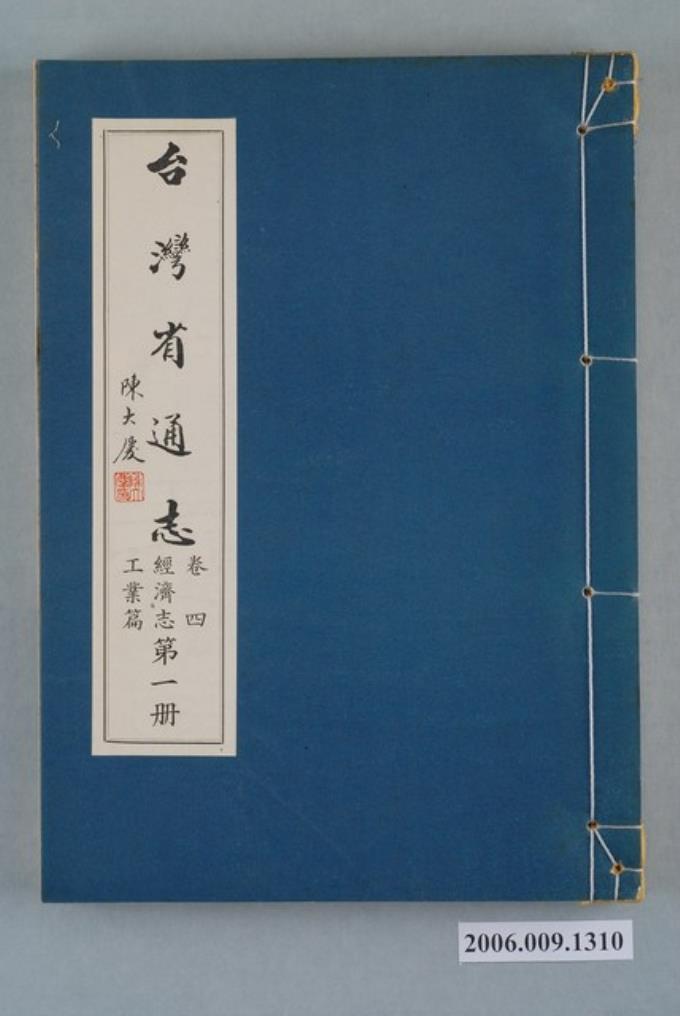 台灣省通志
卷四
經濟志
工業篇
第一册
陳大慶
2006.009.1310